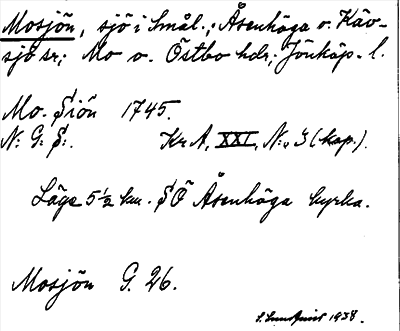 Mosjön, sjö i Smål.; Åsenhöga o. Käv-
sjö sr; Mo o. Östbo hdr; Jönköp. l.
Mo. Siön 1745.
N: G: S:. Kr A, XXI, N:o 3 (kap.).
Läge 5½ km. SÖ Åsenhöga kyrka.
Mosjön G. 26.
1938.